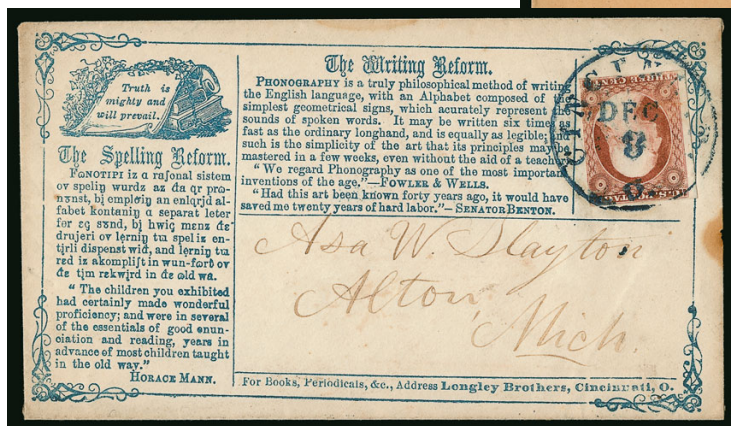 Truth is
mighty and
will prevail.
The Spelling Reform.
FƆNOTIPI iz a raʃonal sistem
ov speliŋ wurdz az ða qr pro-
nɤnst, bį emploiŋ an enlqrjd al-
fabet kontaniŋ a separat leter
for eg sɤnd, bį hwiç menz ðe
drujeri ov lęrniŋ tu spel iz en-
tįrli dispenst wid, and lęrniŋ tu
red iz akompliʃt in wun-ford ov
ðe tįm rekwįrd in ðe øld wa.
" The children you exhibited
had certainly made wonderful
proficiency; and were in several
of the essentials of good enun-
ciation and reading, years in
advance of most children taught
in the old way."
HORACE MANN.
The Writing Reform.
PHONOGRAPHY is a truly philosophical method of writing
the English language, with an Alphabet composed of the
simplest geometrical signs, which accurately represent the
sounds of spoken words. It may be written six times as
fast as the ordinary longhand, and is equally as legible; and
such is the simplicity of the art that its principles may be
mastered in a few weeks, even without the aid of a teacher
" We regard Phonography as one of the most important
inventions of the age,"—FOWLER & WELLS.
" Had this art been known forty years ago, it would have
saved me twenty years of hard labor."—SENATOR BENTON.
DEC
8
Asa W. Slayton
Alton,
Mich.
For Books, Periodicals, &c., Address Longley Brothers, Cincinnati, O.